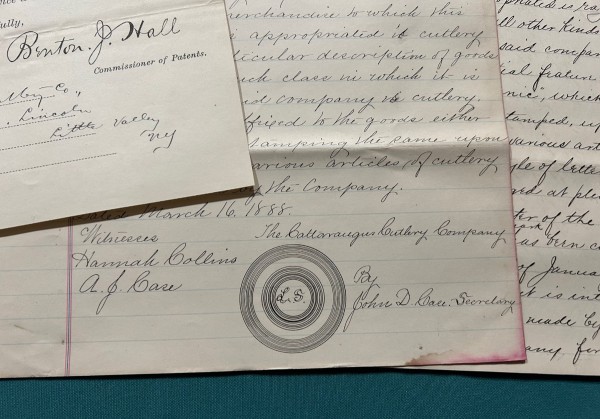 Benton J. Hall
Commissioner of Patents.
Lincoln
Little Valley
NY
merchandise to which this
is appropriated is cutlery
ticular description of goods
such class in which it is
said company is cutlery,
ffixed to the goods either
stamping the same upon
various articles of cutlery
by the Company.
March 16. 1888.
Witnesses
Hannah Collins
A. J. Case
The Cattaraugus Cutlery Company
L.S.
By
John D. Case. Secretary
opriated is
ll other kinds
said compan
ial featur
nic", which
tamped, up
various art
yle of lette
ed at ple
ter of the
ark
as been c
of Januar
it is int
made by
any for